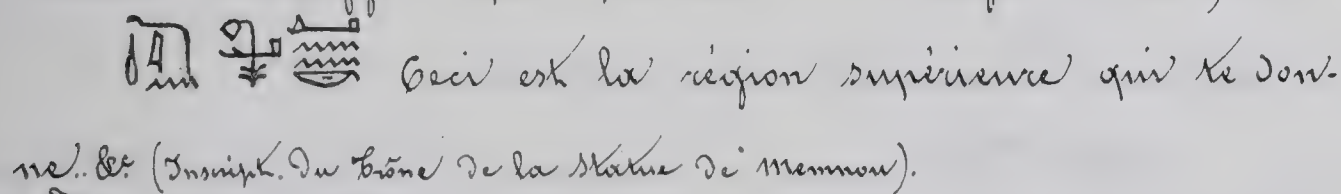 Ceci est la région supérieure qui te don-
ne.. &c (Inscript. du Trône de la statue de Memnon).